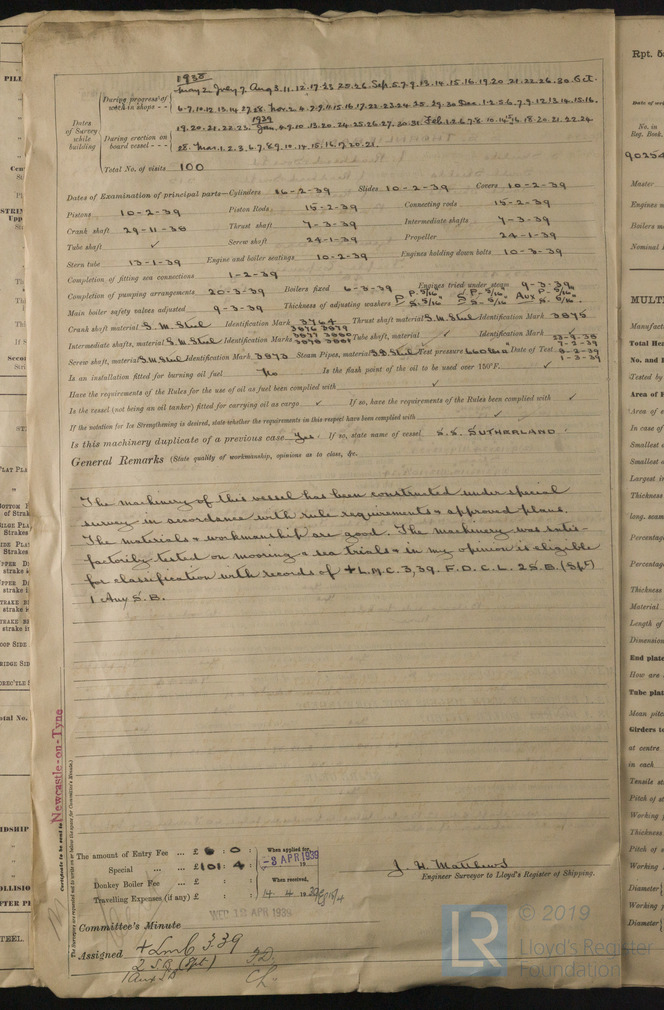 1938
During progress of work in shops - -
May 2 July 7 Aug 3.11.12.17.23.25.26 Sep 5.7.9.13.14.15.16.19.20.21.22.26.30 Oct.
6.7.10.12.13.14.27.28. Nov. 2.4.7.9.11.15.16.17.22.23.24.25.29.30 Dec. 1.2.5.6.7.9.12.13.14.15.16.
1939
Dates of Survey while building
During erection on board vessel - - -
19.20.21.22.23. Jan. 4.9.10.13.20.24.25.26.27.30.31 Feb. 1.2.6.7.8.10.14.16.18.20.21.22.24.
28. Mar. 1.2.3.6.7.8.9.10.14.15.16.17.20.21.
Total No. of visits 100
Dates of Examination of principal parts—Cylinders 16-2-39 Slides 10-2-39 Covers 10-2-39
Pistons 10-2-39 Piston Rods 15-2-39 Connecting rods 15-2-39
Crank shaft 29-11-38 Thrust shaft 7-3-39 Intermediate shafts 7-3-39
Tube shaft ✓ Screw shaft 24-1-39 Propeller 24-1-39
Stern tube 13-1-39 Engine and boiler seatings 10-2-39 Engines holding down bolts 10-3-39
Completion of fitting sea connections 1-2-39
Completion of pumping arrangements 20-3-39 Boilers fixed 6-3-39 Engines tried under steam 9-3-39
Main boiler safety valves adjusted 9-3-39 Thickness of adjusting washers P P. 5/16" S. 5/16" S P. 5/16" S. 5/16" Aux P. 5/16" S. 5/16"
Crank shaft material S.M. Steel Identification Mark 3764 Thrust shaft material S.M. Steel Identification Mark 3875
Intermediate shafts, material S.M. Steel Identification Marks 3876 3879 3877 3880 3878 3881 Tube shaft, material ✓ Identification Mark ✓
Screw shaft, material S.M. Steel Identification Mark 3873 Steam Pipes, material S.D. Steel Test pressure 660 lbs Date of Test 23-9-38 7-2-39 8-2-39 1-3-39
Is an installation fitted for burning oil fuel No Is the flash point of the oil to be used over 150°F. ✓
Have the requirements of the Rules for the use of oil as fuel been complied with ✓
Is the vessel (not being an oil tanker) fitted for carrying oil as cargo ✓ If so, have the requirements of the Rules been complied with ✓
If the notation for Ice Strengthening is desired, state whether the requirements in this respect have been complied with ✓ ✓
Is this machinery duplicate of a previous case Yes If so, state name of vessel S.S. SUTHERLAND.
General Remarks (State quality of workmanship, opinions as to class, &c.
The machinery of this vessel has been constructed under special
survey in accordance with rule requirements & approved plans.
The materials & workmanship are good. The machinery was satis-
factorily tested on mooring & sea trials & in my opinion is eligible
for classification with records of + L.M.C. 3,39. F.D. C.L. 2 S.B. (Spt)
1 Aux S.B.
Newcastle-on-Tyne
Certificate to be sent to
(The Surveyors are requested not to write on or below the space for Committee's Minute.)
The amount of Entry Fee ... £ 6 : 0 :
Special ... ... £ 101 : 4 :
Donkey Boiler Fee ... £ : :
Travelling Expenses (if any) £ : :
When applied for,
-8 APR 1939
When received,
14. 4. 1939
J. H. Matthews
Engineer Surveyor to Lloyd's Register of Shipping.
WED 12 APR 1939
Committee's Minute
Assigned + Lmc 3.39
2 S.B. (Spt.) F.D.
1 Aux S.B C.L.
LR © 2019
Lloyd's Register
Foundation
Rpt. 5
No. in
Reg. Book.
90254
Master
Engines
Boilers
Nominal
MULT
Total Hea
No. and
Smallest
Smallest
Largest
Thickness
long. seam
Percentage
Percentage
Thickness
Material
Length of
Dimension
End plate
How are
Tube plat
Mean pitc
Girders to
at centre
in each
Tensile
Pitch of
Working
Thickness
Pitch of
Working
Diameter
Working
Diameter